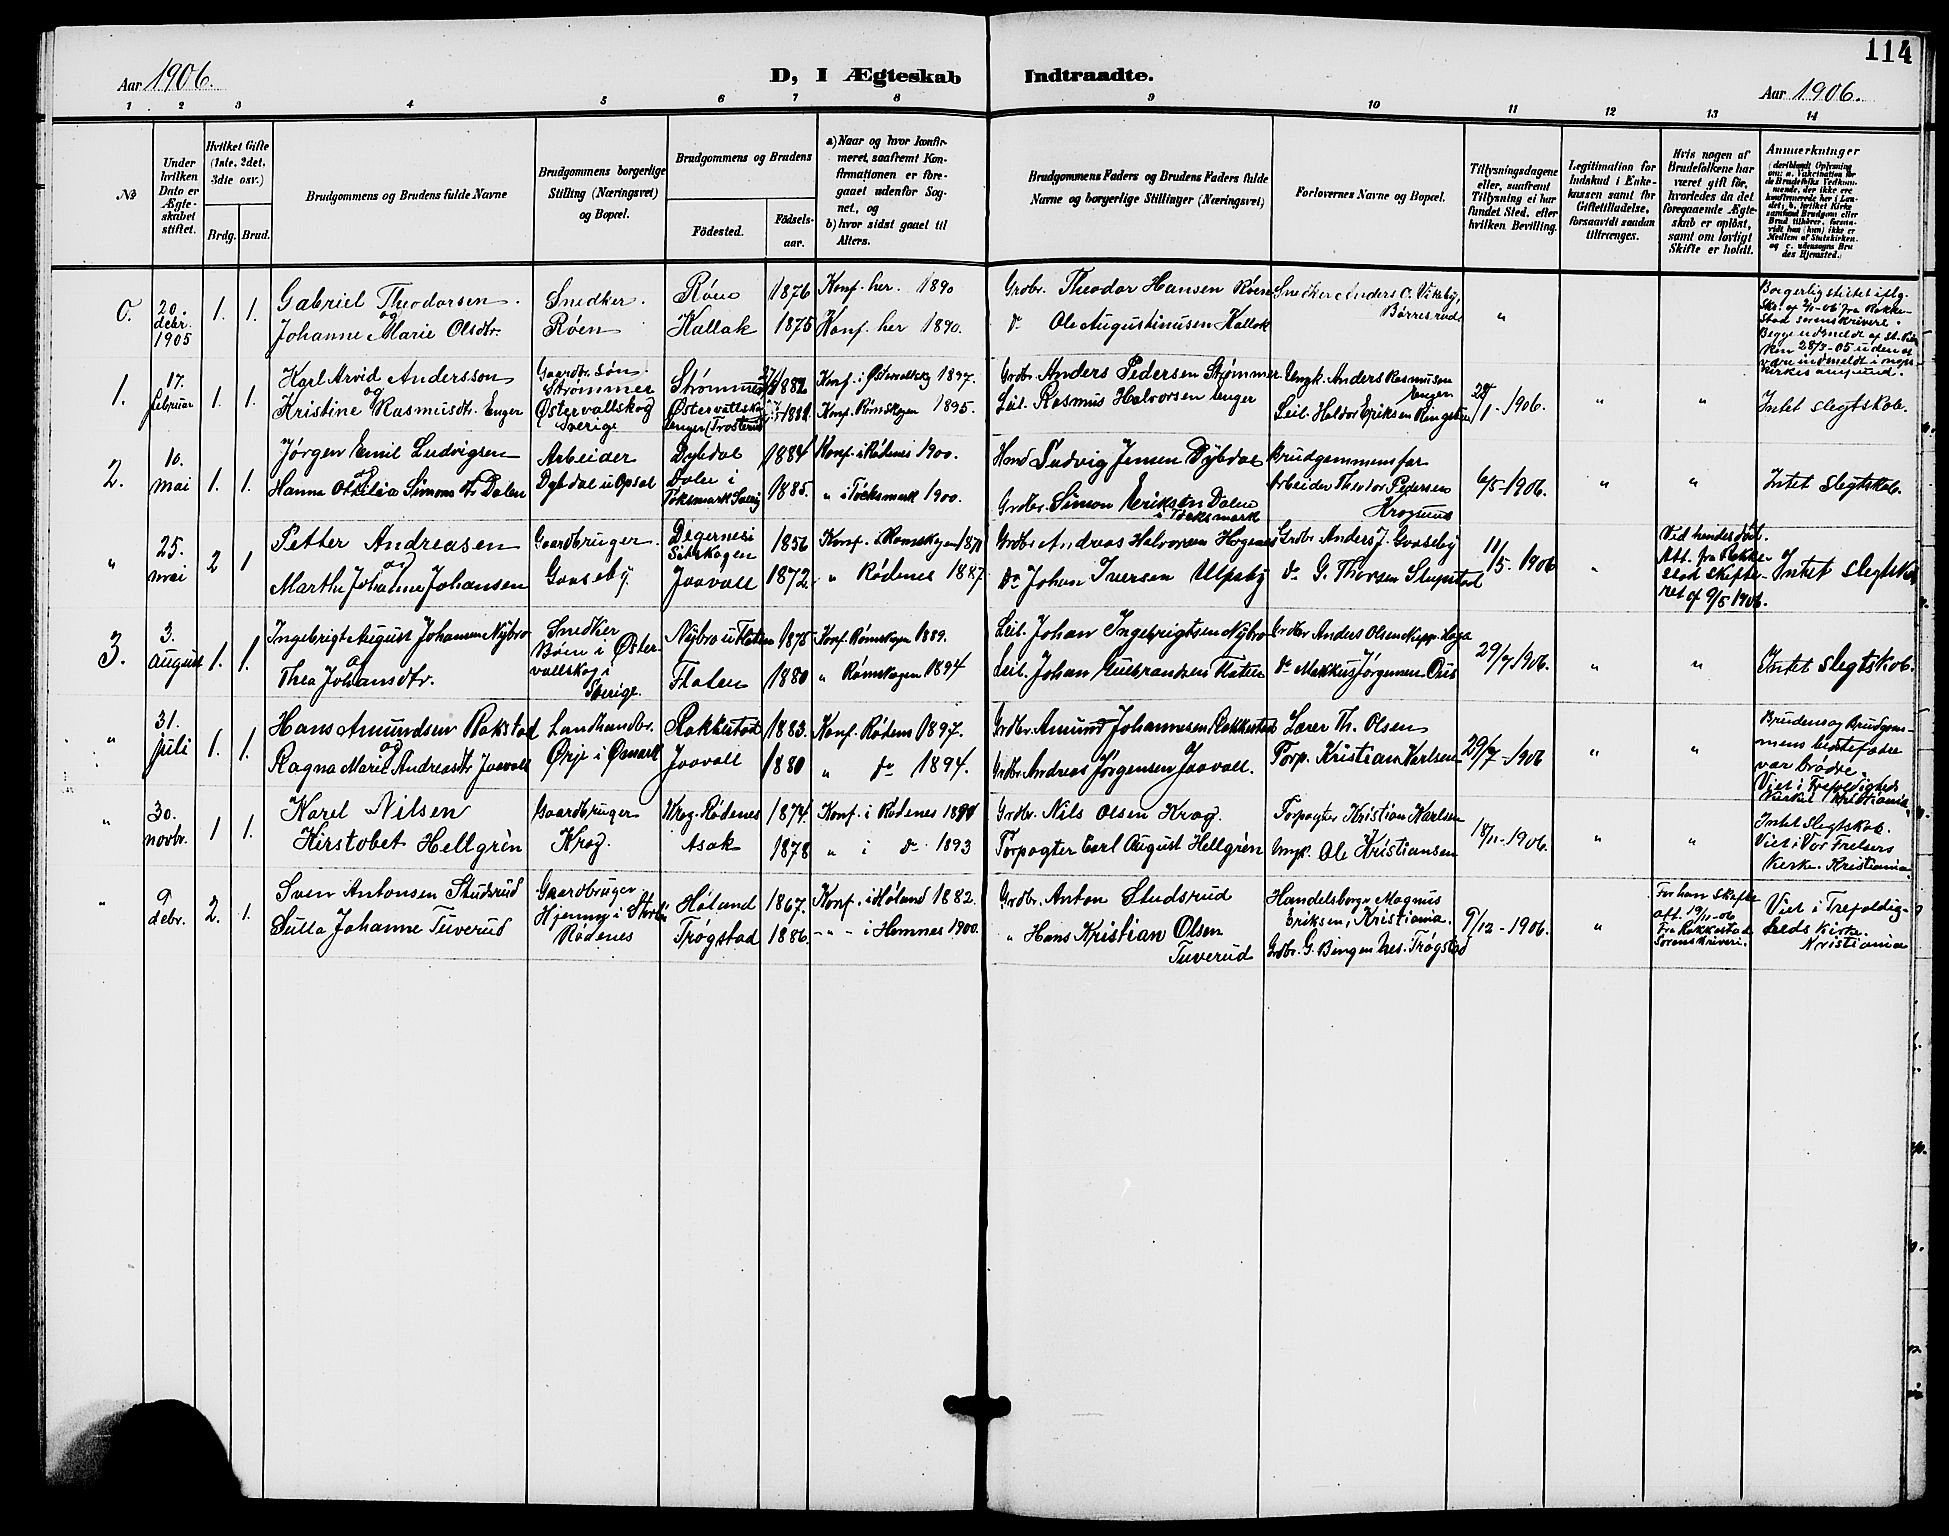 114
Aar 1906.
D, I Ægteskab Indtraadte.
Aar 1906.
1 2 3 4 5 6 7 8 9 10 11 12 13 14
No
Under hvilken Dato er Ægteskabet stiftet.
Hvilket Gifte (1ste, 2det, 3die osv.)
Brdg. Brud.
Brudgommens og Brudens fulde Navne
Brudgommens borgerlige Stilling (Næringsvei) og Bopæl.
Brudgommens og Brudens
Fødested. Fødselsaar.
a) Naar og hvor konfirmeret, saafremt Konfirmationen er foregaaet udenfor Sognet, og
b) hvor sidst gaaet til Alters.
Brudgommens Faders og Brudens Faders fulde Navne og borgerlige Stillinger (Næringsvei)
Forlovernes Navne og Bopæl.
Tillysningsdagene eller, saafremt Tillysning ei har fundet Sted, efter hvilken Bevilling.
Legitimation for Indskud i Enkekassen samt for Giftetilladelse, forsaavidt saadan tiltrænges.
Hvis nogen af Brudefolkene har været gift før, hvorledes da det foregaaende Ægteskab er opløst, samt om lovligt Skifte er holdt.
Anmerkninger
0. 20. debr. 1905 1. 1.
Gabriel Theodorsen
og
Johanne Marie Olsdtr.
Snedker.
Røen
Røen 1876
Kallak 1875
Konf. her. 1890
Konf. her 1890.
Grdbr. Theodor Hansen Røen
do Ole Augustinusen Kallak
Snedker Anders O. Vikeby,
Børresrud
"
Borgerlig stiftet iflg.
Skr. af 2/1-06 fra Rakkestad sorenskriveri.
Begge udmeldt af st. Kirken 28/3-05 uden at
være indmeldt i nogen
kirkesamfund.
1. 17. februar 1. 1.
Karl Arvid Andersson
og
Kristine Rasmusdtr. Enger
Gaardbr. søn
Strømmer
Østervallskog
Sverige
Strømmer 1882
Østervallskog
Enger (Trosterud)
Konf. i Østervallskg 1897.
Konf. Rømskogen 1895.
Grdbr. Anders Pedersen Strømmer
Leil. Rasmus Halvorsen Enger
Ungk. Anders Rasmusen
Enger
Leil. Haldor Eriksen Ringstad
28/1-1906.
" "
Intet slegtskab.
2. 10. mai 1. 1.
Jørgen Emil Ludvigsen
og
Hanna Otelia Simonsdtr Dalen
Arbeider
Dybdal u. Opsal
Dybdal 1884
Dalen i
Töksmark Sverig 1885.
Konf. i Rødenes 1900.
" i Töcksmark 1900.
Hmd Ludvig Jensen Dybdal
Grdbr. Simon Eriksen Dalen
i Töcksmark
Brudgommens far
Arbeider Theodor Pedersen
Krognes
6/5-1906.
" "
Intet Slegtskab.
" 25. mai 2 1
Petter Andreasen
og
Marthe Johanne Johansen
Gaardbruger.
Gaaseby.
Degernes i
Setskogen 1856
Jaavall 1872.
Konf. i Rømskogen 1871
" Rødenes 1887.
Grdbr Andreas Halvorsen Høgenes
Do Johan Iversen Ulpsby
Grdbr. Anders J. Gaaseby
do G. Thorsen Slupstad
11/5-1906
"
Ved hendes død.
Att. fra Rakkestad skifteret af 9/5 1906.
Intet slegtskab
3. 3. august 1. 1.
Ingebrigt August Johansen Nybro
og
Thea Johansdtr.
Snedker
Bøen i Østervallskog i
Sverige.
Nybro u. Flaten 1875
Flaten 1880
Konf. Rømskogen 1889.
" Rømskogen 1894
Leil. Johan Ingebrigtsen Nybro
Leil. Johan Gulbrandsen Flaten
Grdbr Anders Olsen Haga
do Markus Jørgensen Ous
29/7 1906.
" "
Intet slegtskab.
" 31. juli 1. 1.
Hans Amundsen Rakstad
og
Ragna Marie Andreasdtr Jaavall
Landhandbr.
Ørje i Ømark
Rakkestad 1883.
Jaavall 1880
Konf. Rødenes 1897.
" do 1894.
Grdbr. Amund Johannesen Rakkestad
Grdbr. Andreas Jørgensen Jaavall.
Lærer Th. Olsen
Forp. Kristian Karlsen
29/7-1906
" "
Brudens og Brudgommens bestefædre
var brødre.
Viet i Trefoldigheds
Kirke i Kristiania.
" 30. novbr. 1 1.
Karel Nilsen
Kirstobet Hellgrèn
Gaardbruger
Krog.
Krog. Rødenes 1874
Asak 1878
Konf. i Rødenes 1890
" i do 1893
Grdbr. Nils Olsen Krog.
Forpagter Carl August Hellgrèn
Forpagter Kristian Karlsen
Ungk. Ole Kristiansen
18/11-1906.
" "
Intet Slegtskab.
Viet i Vor Frelsers
Kirke. Kristiania.
" 9 debr. 2. 1.
Sven Antonsen Studsrud
Julla Johanne Tuverud
Gaardbruger
Rødenes
Høland 1867.
Trøgstad 1886.
Konf. i Høland 1882.
" - " - i Hemnes 1900.
Grdbr. Anton Studsrud
" Hans Kristian Olsen
Tuverud
Handelsborger Magnus
Eriksen, Kristiania.
Grdbr. G. Bingen hes. Trøgstad
9/12-1906.
"
For han skifte
att. 19/11-06
fra Rakkestad
Sorenskriveri.
Viet i Trefoldigheds Kirke.
Kristiania